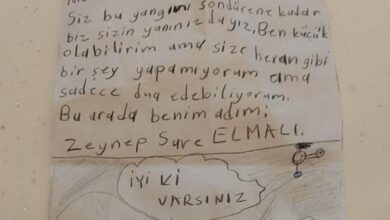 Siz bu yangını söndürene kadar
biz sizin yanınızdayız. Ben küçük
olabilirim ama size heran gibi
bir şey yapamıyorum ama
sadece dua edebiliyorum.
Bu arada benim adım:
Zeynep Sare ELMALI.
İYİ Kİ
VARSINIZ